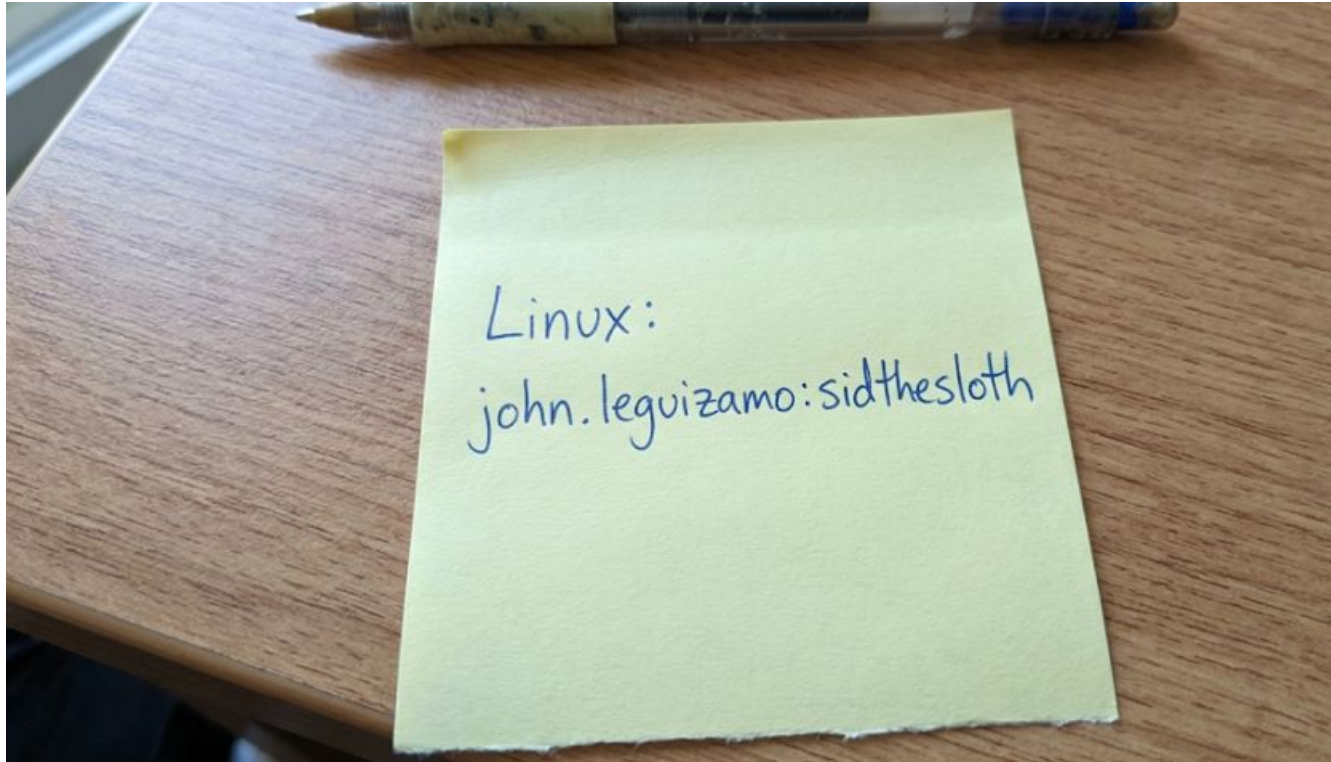 Linux:
john.leguizamo:sidthesloth